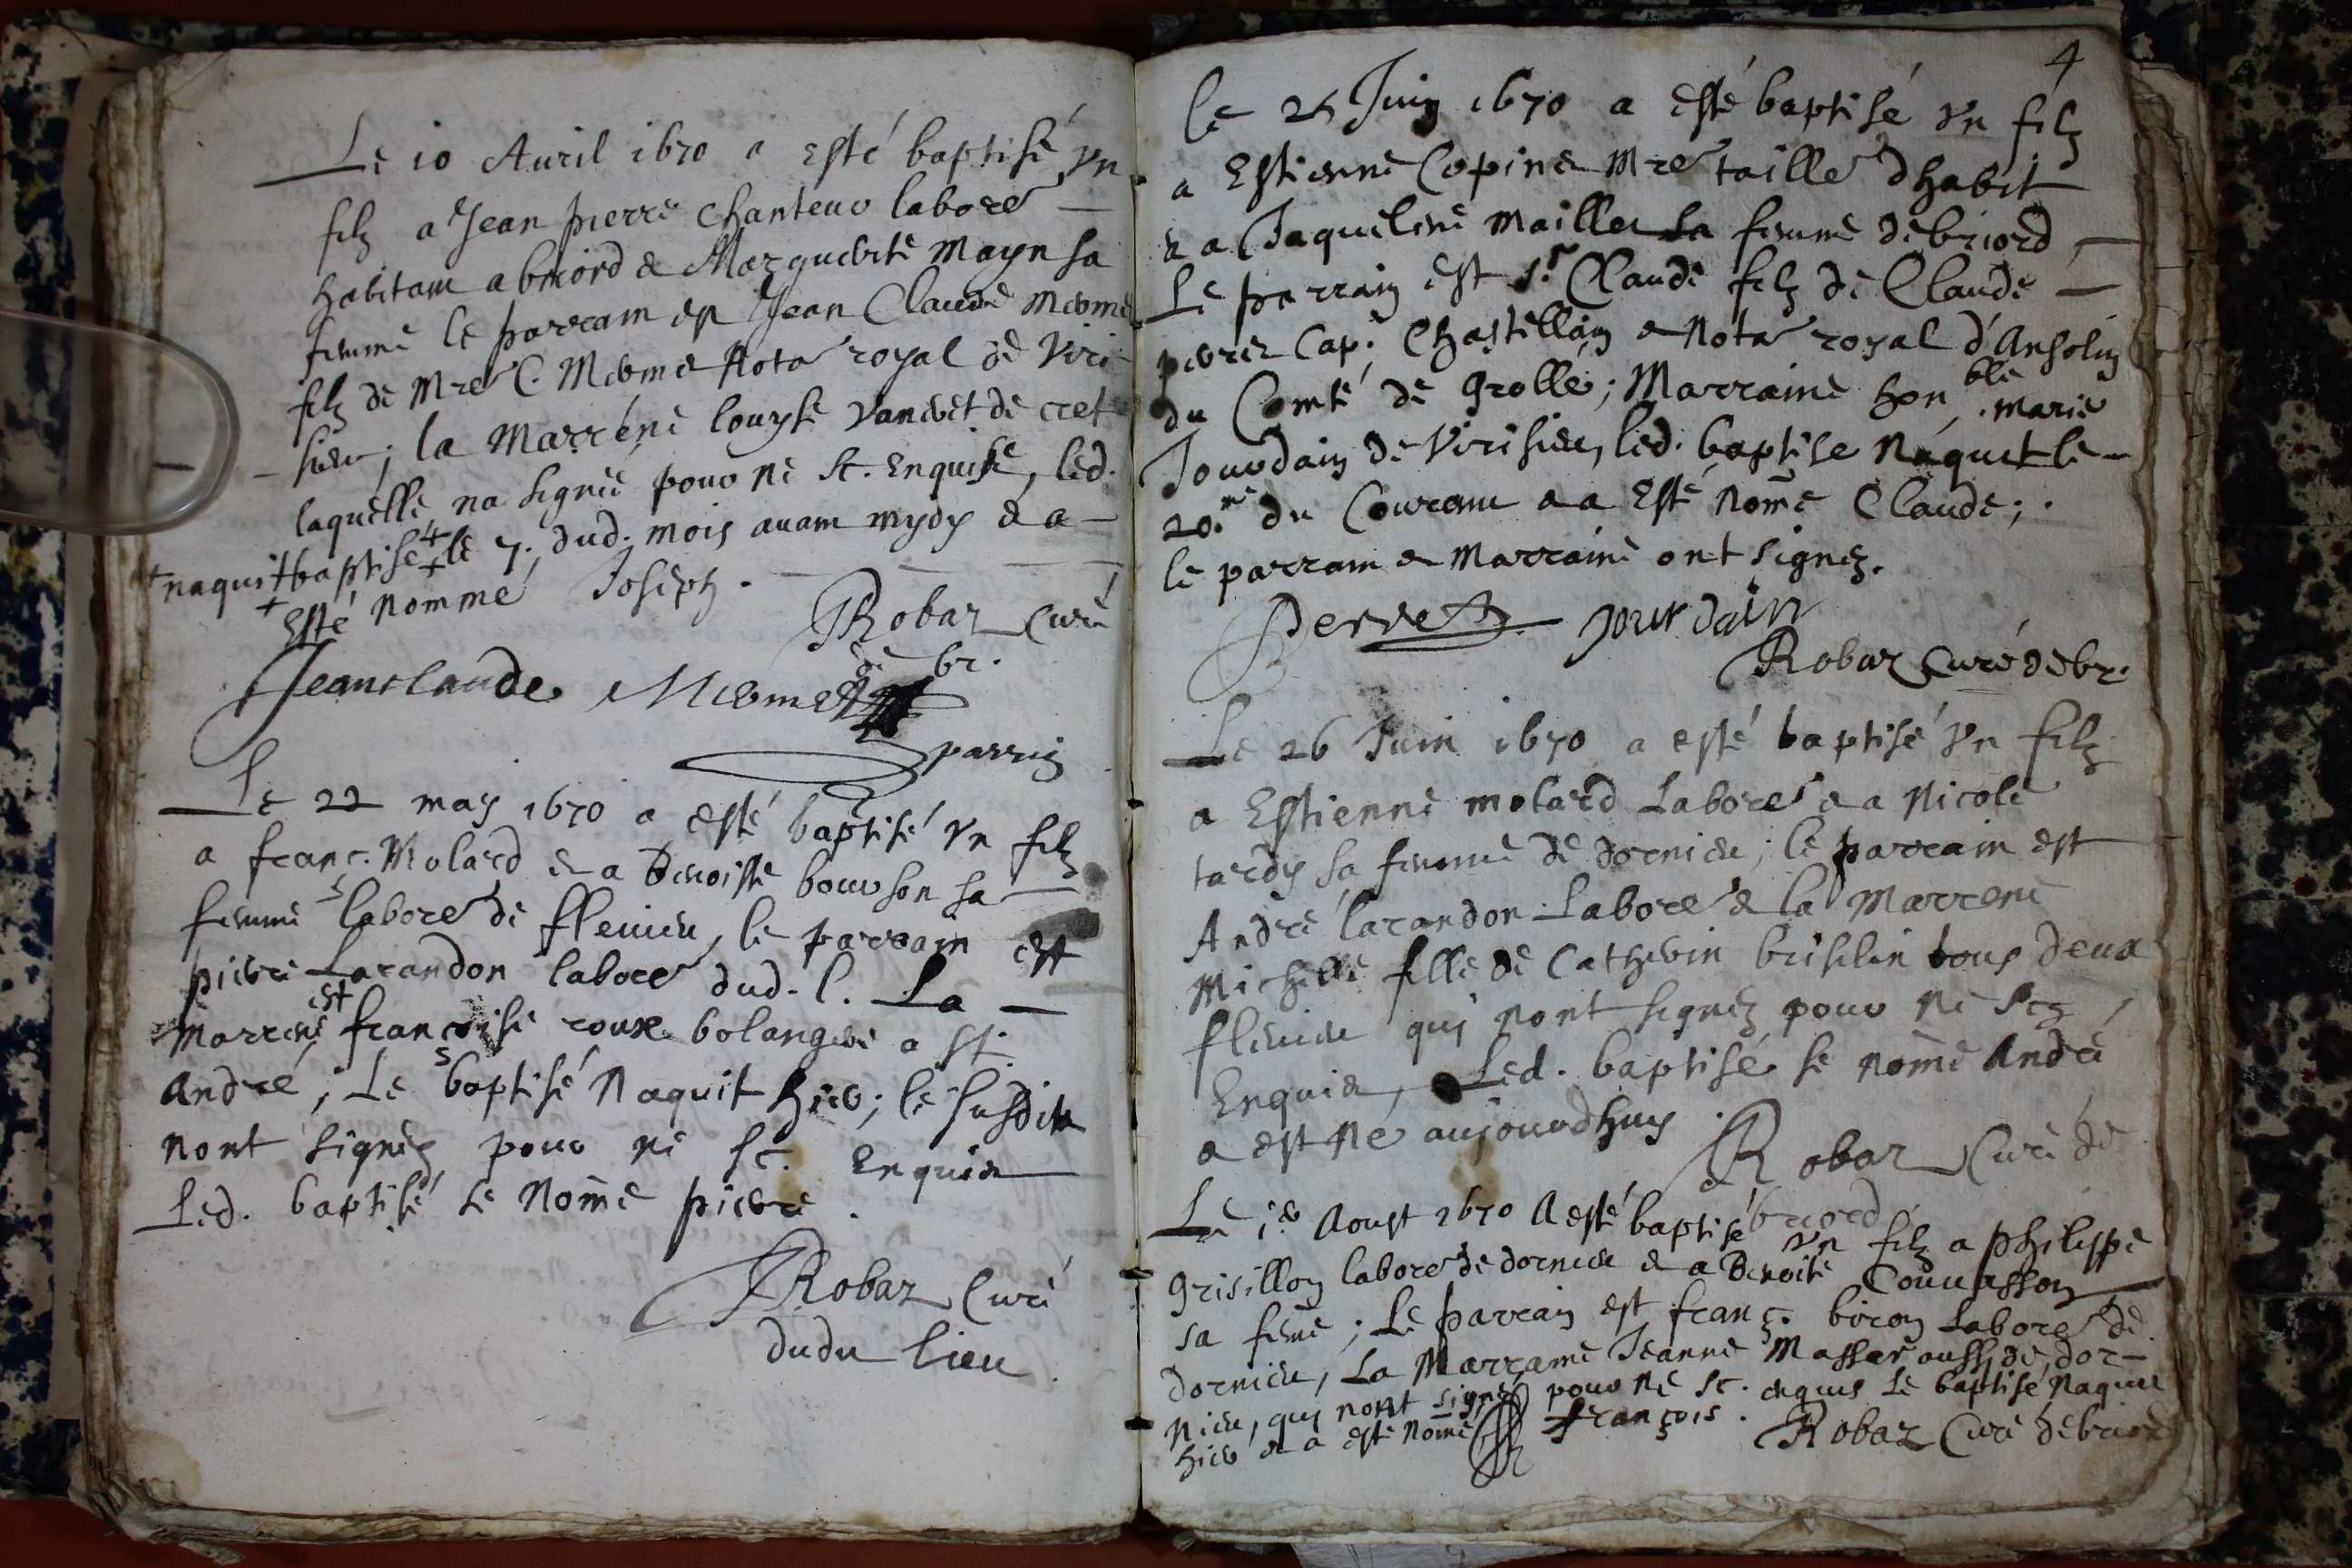 Le 10 Auril 1670 a esté baptisé vn
filz a Jean pierre Chanteur labore
habitant a briord & Marguerite Mayn sa
femme le parrain est Jean Claude
filz de Mre C. Nota royal de Viri
sieu; la Marréne louyse de cret
laquelle na signée pour ne sc. Enquise, led.
+naquit+baptisé le 7. dud. mois auant mydy & a
Esté nommé Joseph.
Robaz Curé
de br.
Jeanclaude
parrin
Le 22 may 1670 a esté baptisé vn filz
a franç. Molard & a Benoiste bourson sa
femme labore de fleuieu, le parrain est
pierre Larandon labore dud. l. La
Marrene est françoise roux bolangere a St.
André; Le baptisé Naquit hier; le susdits
nont signéz pour ne sc. Enquis
Led. baptisé se Nomē pierre.
Robaz Curé
dudu lieu
4
le 25 Juin 1670 a esté baptisé vn filz
a Estienne Copin & Mre taille dhabit
& a Jaqueline Maillet sa femme de briord
Le parrain est Sr. Claude filz de Claude
Cap. Chastellain & Nota royal d'Ansolin
du Comté de Grollé; Marraine honble. marie
Jourdain de Virisieu, led. baptise Náquit le
20.me du Courant & a Esté Nomē Claude;.
le parrain & Marraine ont signéz.
Jourdain
Robaz Curé de br.
Le 26 Juin 1670 a esté baptisé vn filz
a Estienne molard Labore & a Nicole
tardy sa femme de dornieu; le parrain est
André larandon Labore & la Marrene
Michelle fille de Catherin brisselin tous deux
fleuieu qui nont signéz pour ne scz
Enquis, Led. baptisé se nomē André
& est Né aujourdhuy
Robaz Curé de
briord
Le 1er Aoust 1670 A esté baptisé vn filz a philippe
Grisillon labore de dornieu & a Benoite Couuasson
sa feme; Le parrain est franç. biron Labore de
dornieu, La Marraine Jeanne Massar aussy de dor-
nieu, qui nont signé pour ne sc. enquis Le baptisé Naquit
hier & a esté Nomē françois. Robaz Curé de briord